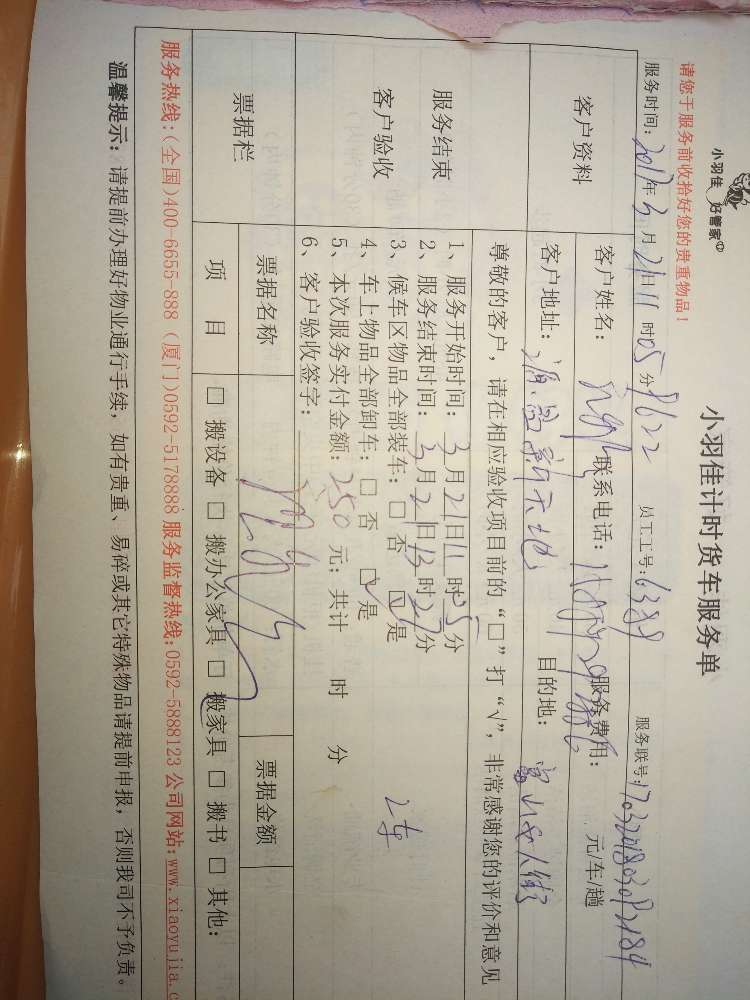 小羽佳 好管家
小羽佳计时货车服务单
请您于服务前收拾好您的贵重物品！
服务时间：2017年3月21日11时05分 员工工号：6389 服务联号：
客户资料
客户姓名： 联系电话： 服务费用： 元/车/趟
客户地址：源昌新天地 目的地：
尊敬的客户，请在相应验收项目前的“□”打“√”，非常感谢您的评价和意见
服务结束
客户验收
1、服务开始时间：3月21日11时05分
2、服务结束时间：3月21日13时27分
3、候车区物品全部装车：□ 否 ☑ 是
4、车上物品全部卸车：□ 否 ☑ 是
5、本次服务实付金额：250元；共计 时 分
6、客户验收签字：
2车
票据栏
票据名称 票据金额
项 目 □ 搬设备 □ 搬办公家具 □ 搬家具 □ 搬书 □ 其他：
服务热线：(全国)400-6655-888 (厦门)0592-5178888 服务监督热线：0592-5888123 公司网站：www.xiaoyujia.c
温馨提示：请提前办理好物业通行手续，如有贵重、易碎或其它特殊物品请提前申报，否则我司不予负责。